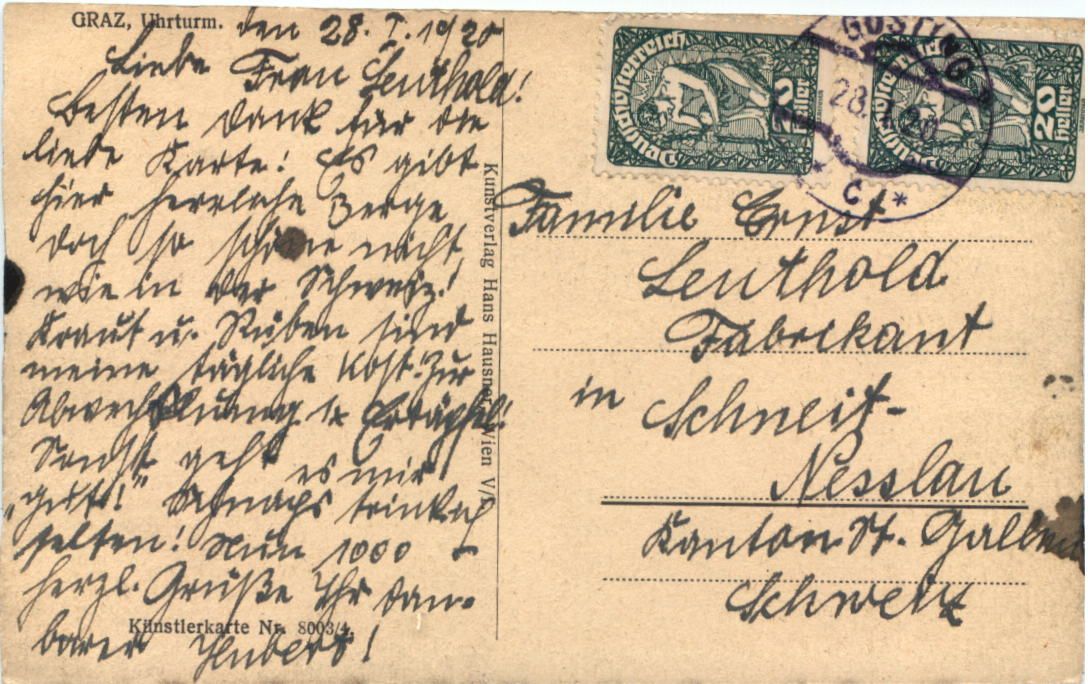 GRAZ, Uhrturm.
den 28. I. 1920
Liebe Frau Leuthold!
Besten Dank für die
liebe Karte! Es gibt
hier herrliche Berge
doch so schöne nicht
wie in der Schweiz!
Kraut u. Rüben sind
meine tägliche Kost. Zur
Abwechslung Erdäpfel!
Sonst geht es mir
„gut!" Schnaps trink ich
selten! Nun 1000
herzl. Grüße Ihr dan-
barer Hubert!
Künstlerkarte Nr. 8003/4
Kunstverlag Hans Hausner, Wien V/
Deutschösterreich
20
Heller
Deutschösterreich
20
Heller
GÖSTING
28. I. 20
* c *
Familie Ernst
Leuthold
Fabrikant
in Schneit-
Nesslau
Kanton St. Gallen
Schweiz